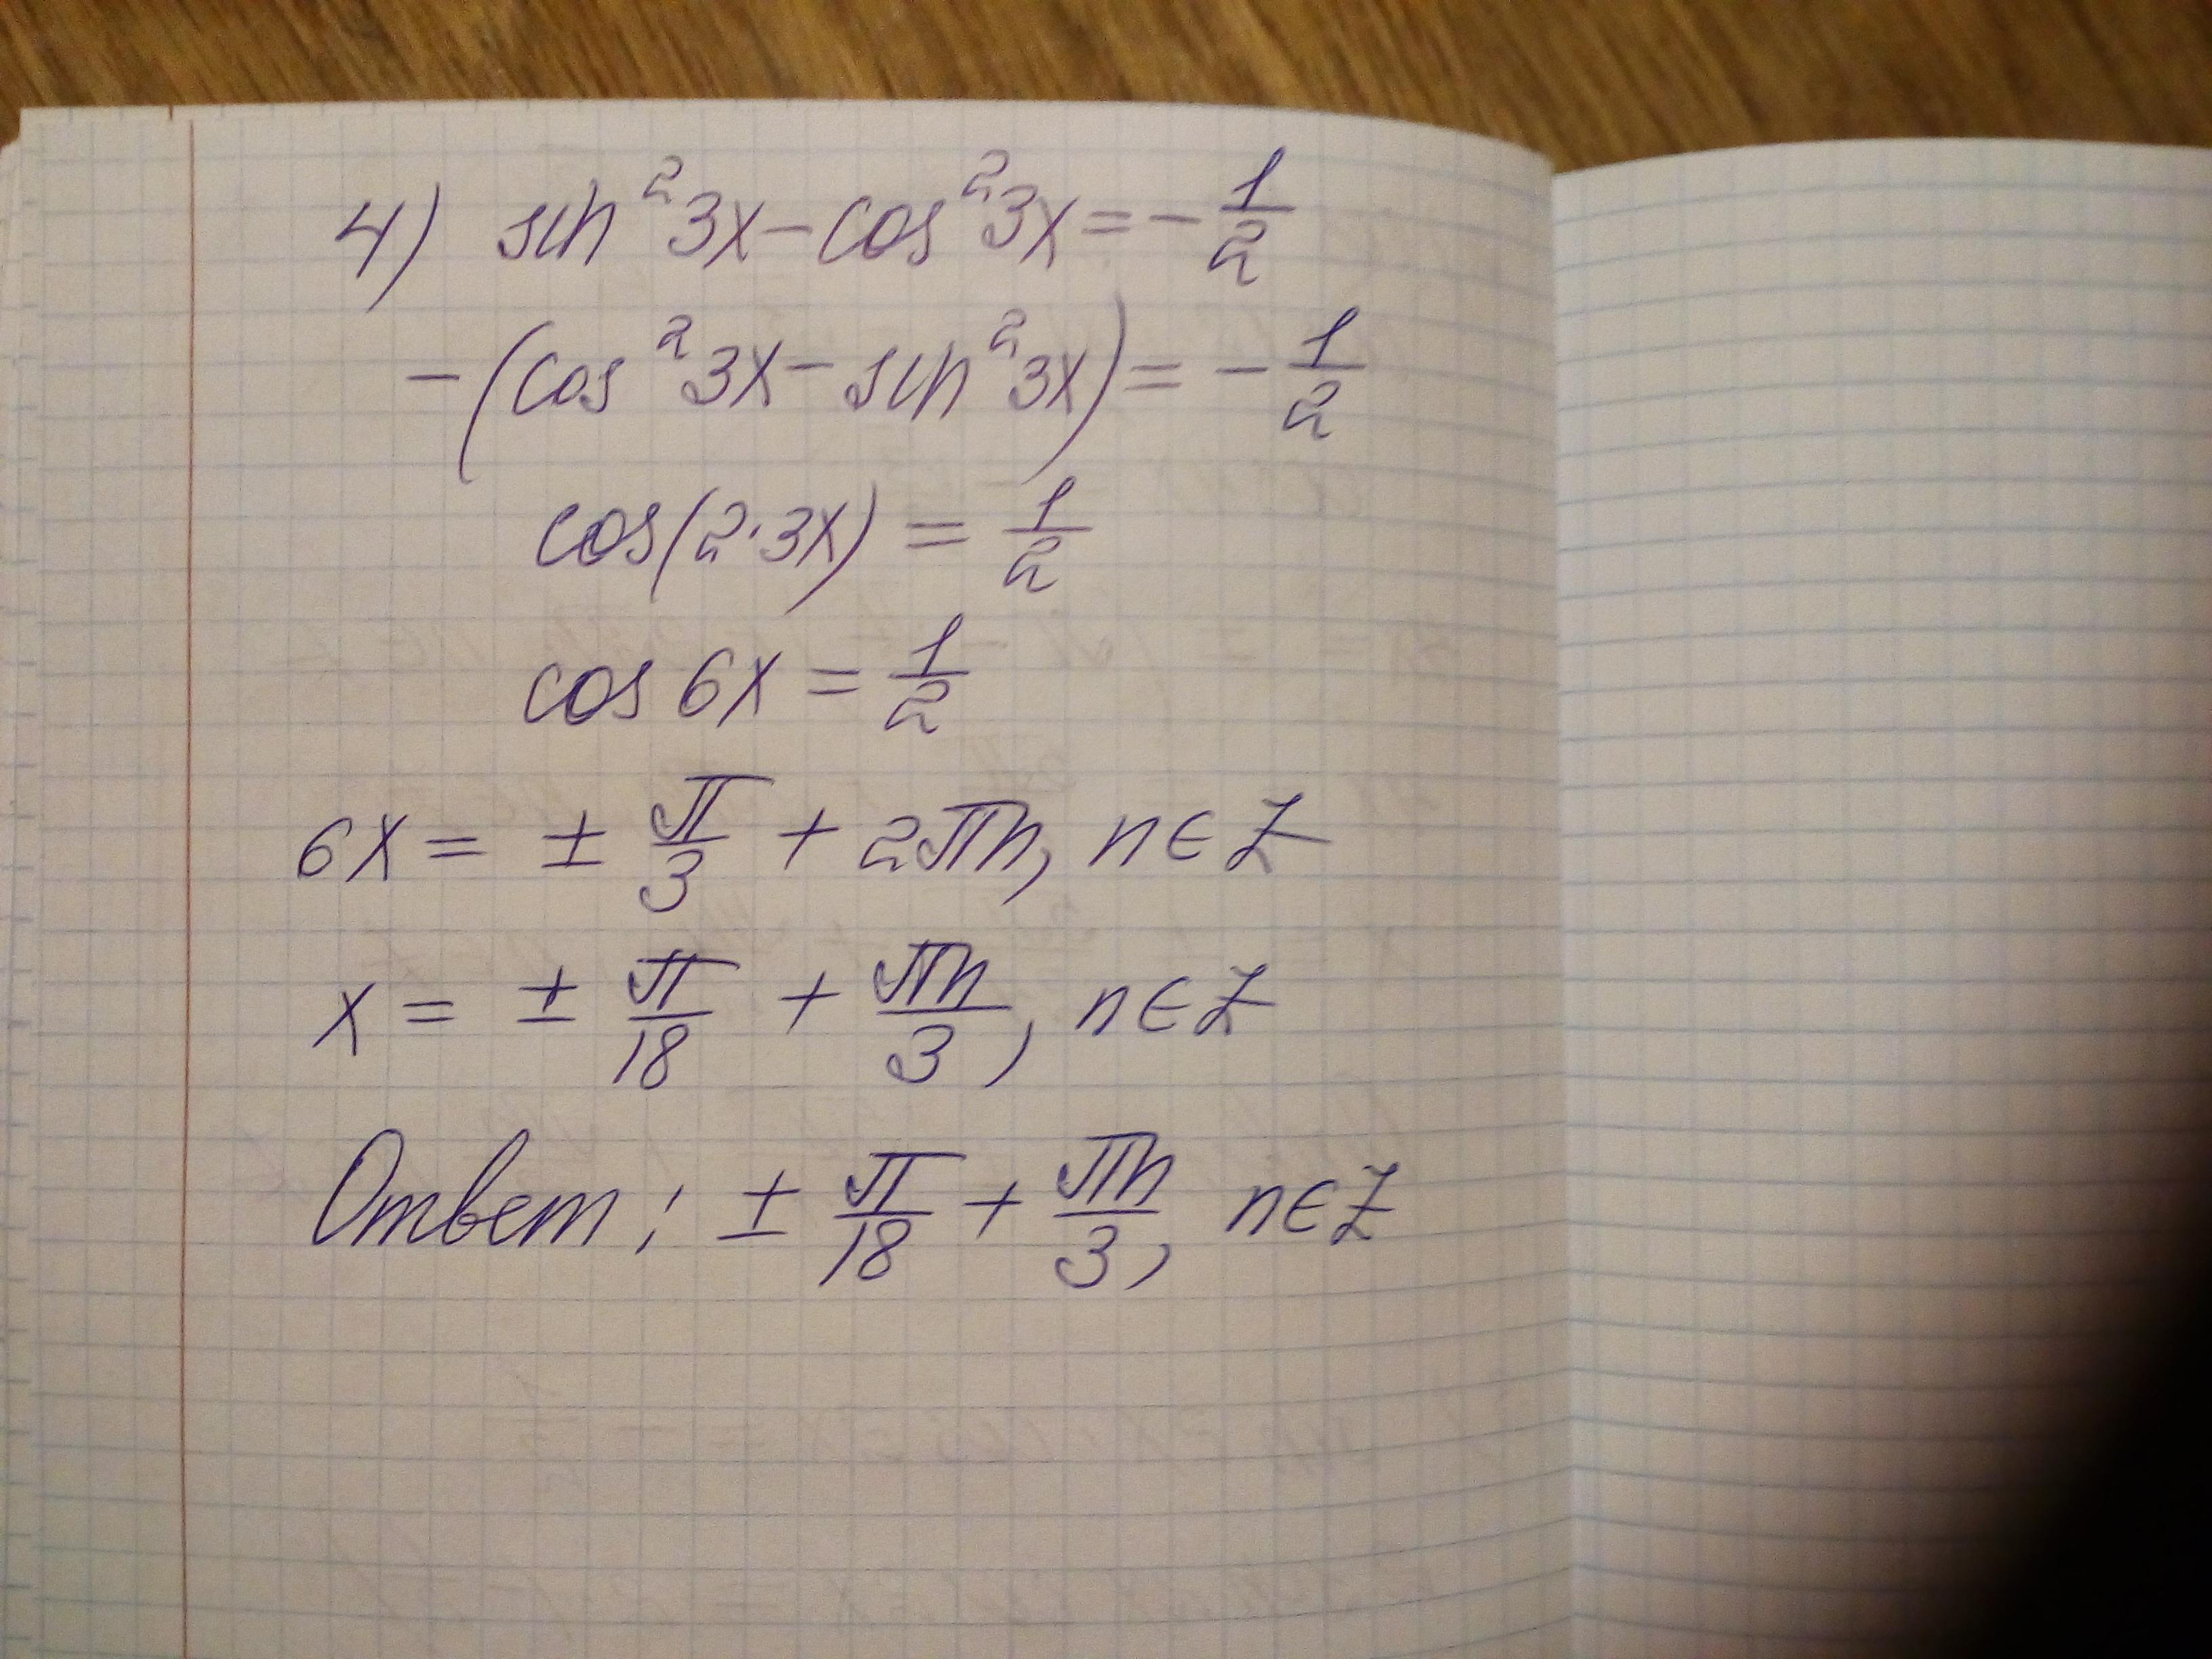 4) sin²3x - cos²3x = - 1/2
-(cos²3x - sin²3x) = - 1/2
cos(2·3x) = 1/2
cos 6x = 1/2
6x = ± π/3 + 2πn, n∈Z
x = ± π/18 + πn/3, n∈Z
Ответ: ± π/18 + πn/3, n∈Z